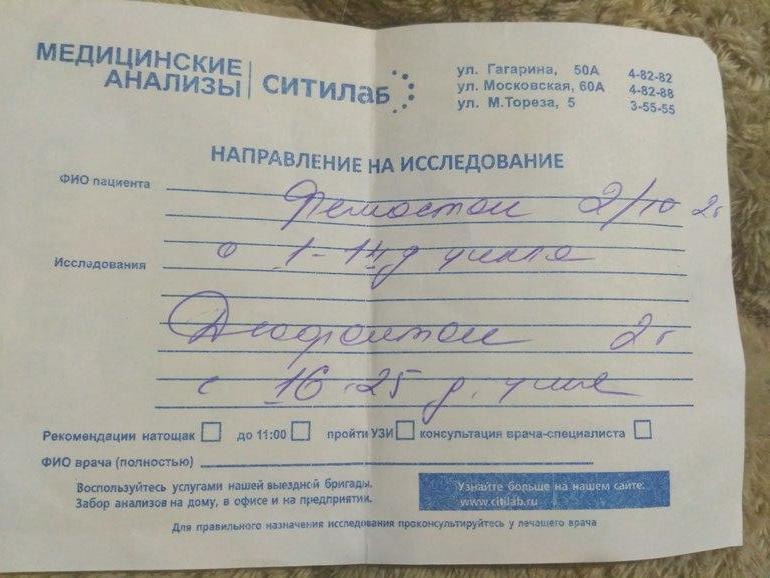 МЕДИЦИНСКИЕ
АНАЛИЗЫ
СИТИЛАБ
ул. Гагарина, 50А 4-82-82
ул. Московская, 60А 4-82-88
ул. М.Тореза, 5 3-55-55
НАПРАВЛЕНИЕ НА ИССЛЕДОВАНИЕ
ФИО пациента
Фемостон 2/10 2т
Исследования
с 1-14 д цикла
Дюфастон 2т
с 16-25 д. цикла
Рекомендации натощак до 11:00 пройти УЗИ консультация врача-специалиста
ФИО врача (полностью)
Воспользуйтесь услугами нашей выездной бригады.
Забор анализов на дому, в офисе и на предприятии.
Узнайте больше на нашем сайте:
www.citilab.ru
Для правильного назначения исследования проконсультируйтесь у лечащего врача